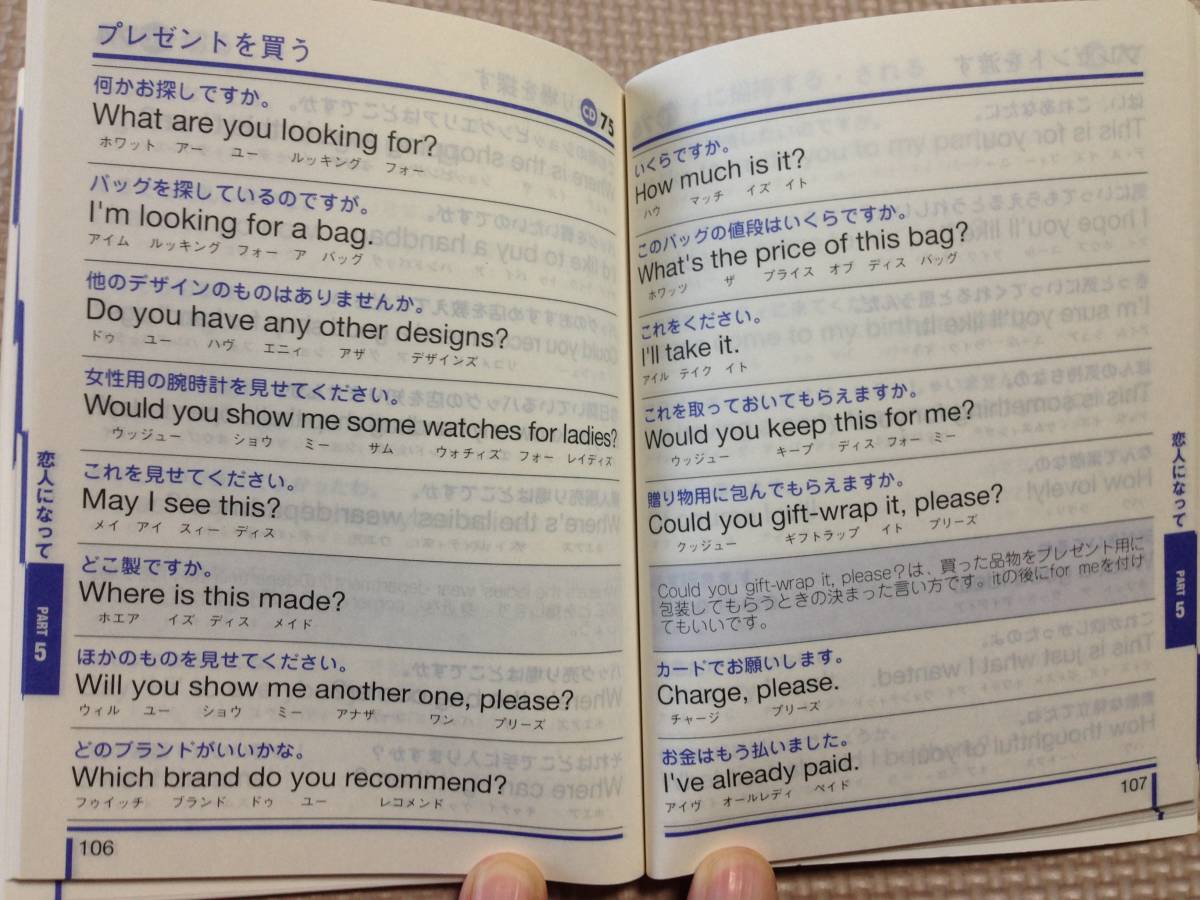 プレゼントを買う
CD 75
何かお探しですか。
What are you looking for?
ホワット アー ユー ルッキング フォー
バッグを探しているのですが。
I'm looking for a bag.
アイム ルッキング フォー ア バッグ
他のデザインのものはありませんか。
Do you have any other designs?
ドゥ ユー ハヴ エニィ アザ デザインズ
女性用の腕時計を見せてください。
Would you show me some watches for ladies?
ウッジュー ショウ ミー サム ウォチィズ フォー レイディズ
これを見せてください。
May I see this?
メイ アイ スィー ディス
どこ製ですか。
Where is this made?
ホエア イズ ディス メイド
ほかのものを見せてください。
Will you show me another one, please?
ウィル ユー ショウ ミー アナザ ワン プリーズ
どのブランドがいいかな。
Which brand do you recommend?
フゥイッチ ブランド ドゥ ユー レコメンド
恋人になって
PART 5
106
いくらですか。
How much is it?
ハウ マッチ イズ イト
このバッグの値段はいくらですか。
What's the price of this bag?
ホワッツ ザ プライス オブ ディス バッグ
これをください。
I'll take it.
アイル テイク イト
これを取っておいてもらえますか。
Would you keep this for me?
ウッジュー キープ ディス フォー ミー
贈り物用に包んでもらえますか。
Could you gift-wrap it, please?
クッジュー ギフトラップ イト プリーズ
Could you gift-wrap it, please?は、買った品物をプレゼント用に
包装してもらうときの決まった言い方です。itの後にfor meを付け
てもいいです。
カードでお願いします。
Charge, please.
チャージ プリーズ
お金はもう払いました。
I've already paid.
アイヴ オールレディ ペイド
恋人になって
PART 5
107